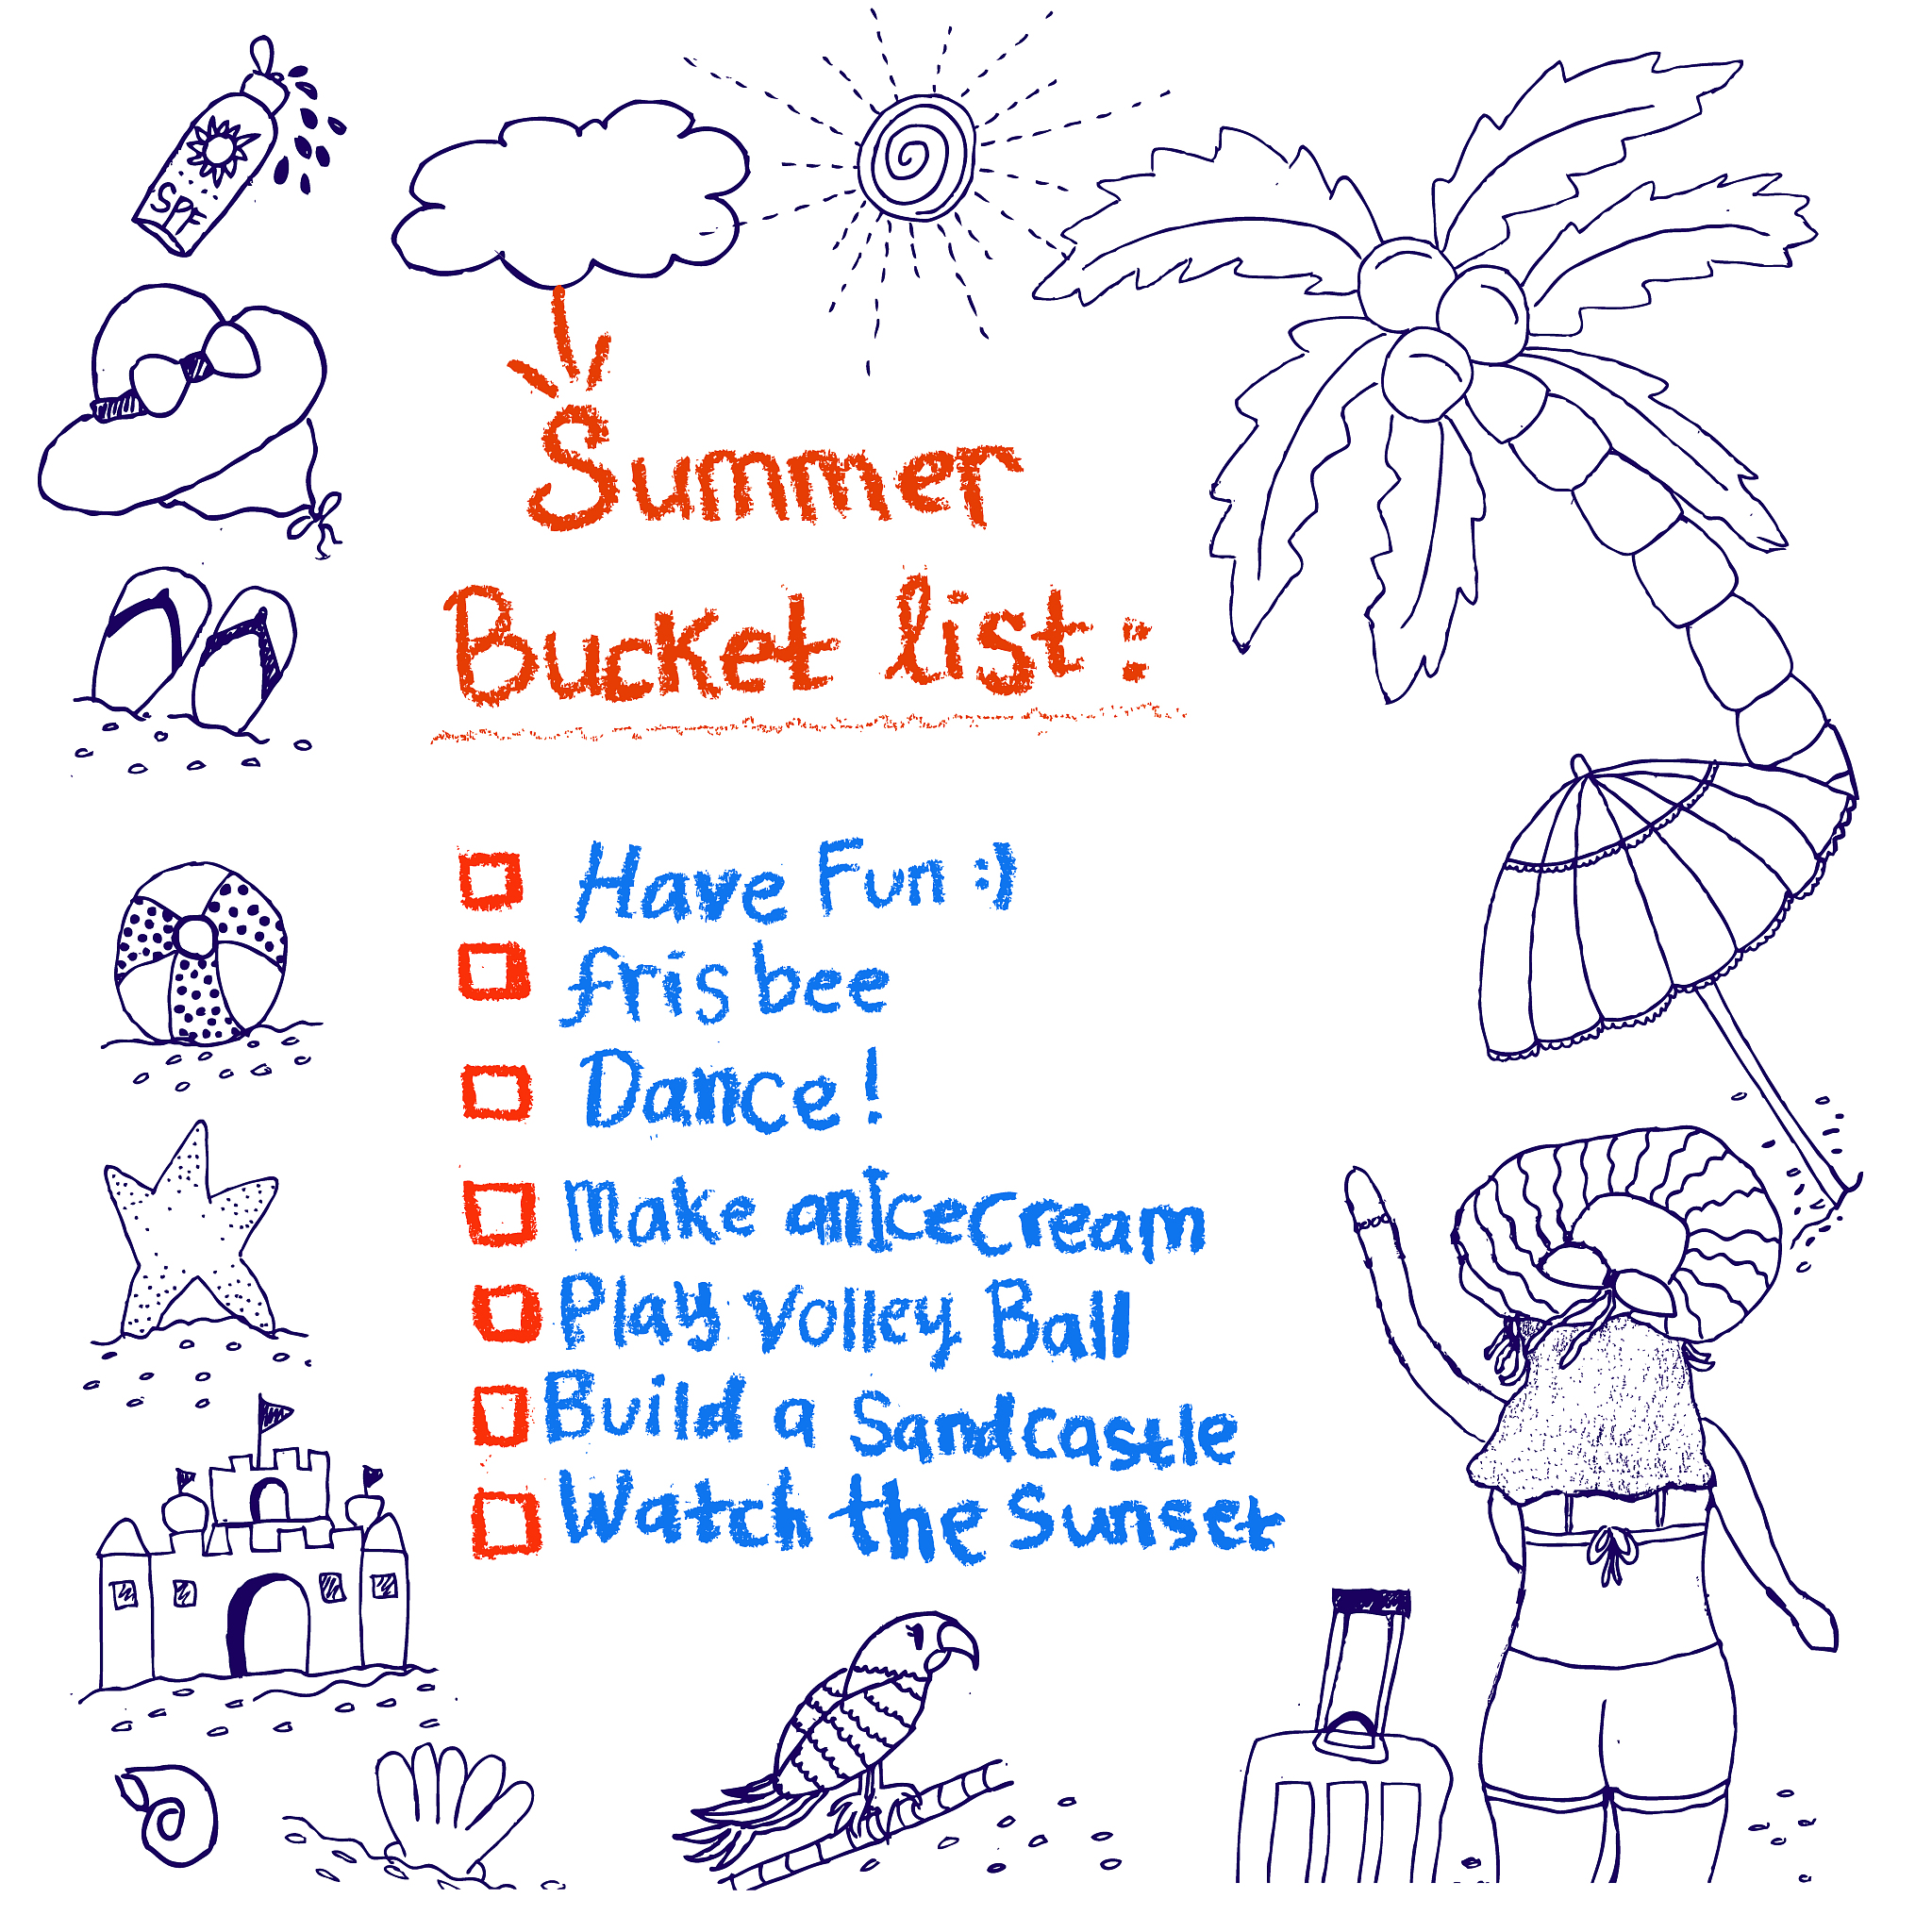 SPF
Summer
Bucket list:
Have Fun :)
frisbee
Dance!
Make an Icecream
Play Volley Ball
Build a Sandcastle
Watch the Sunset